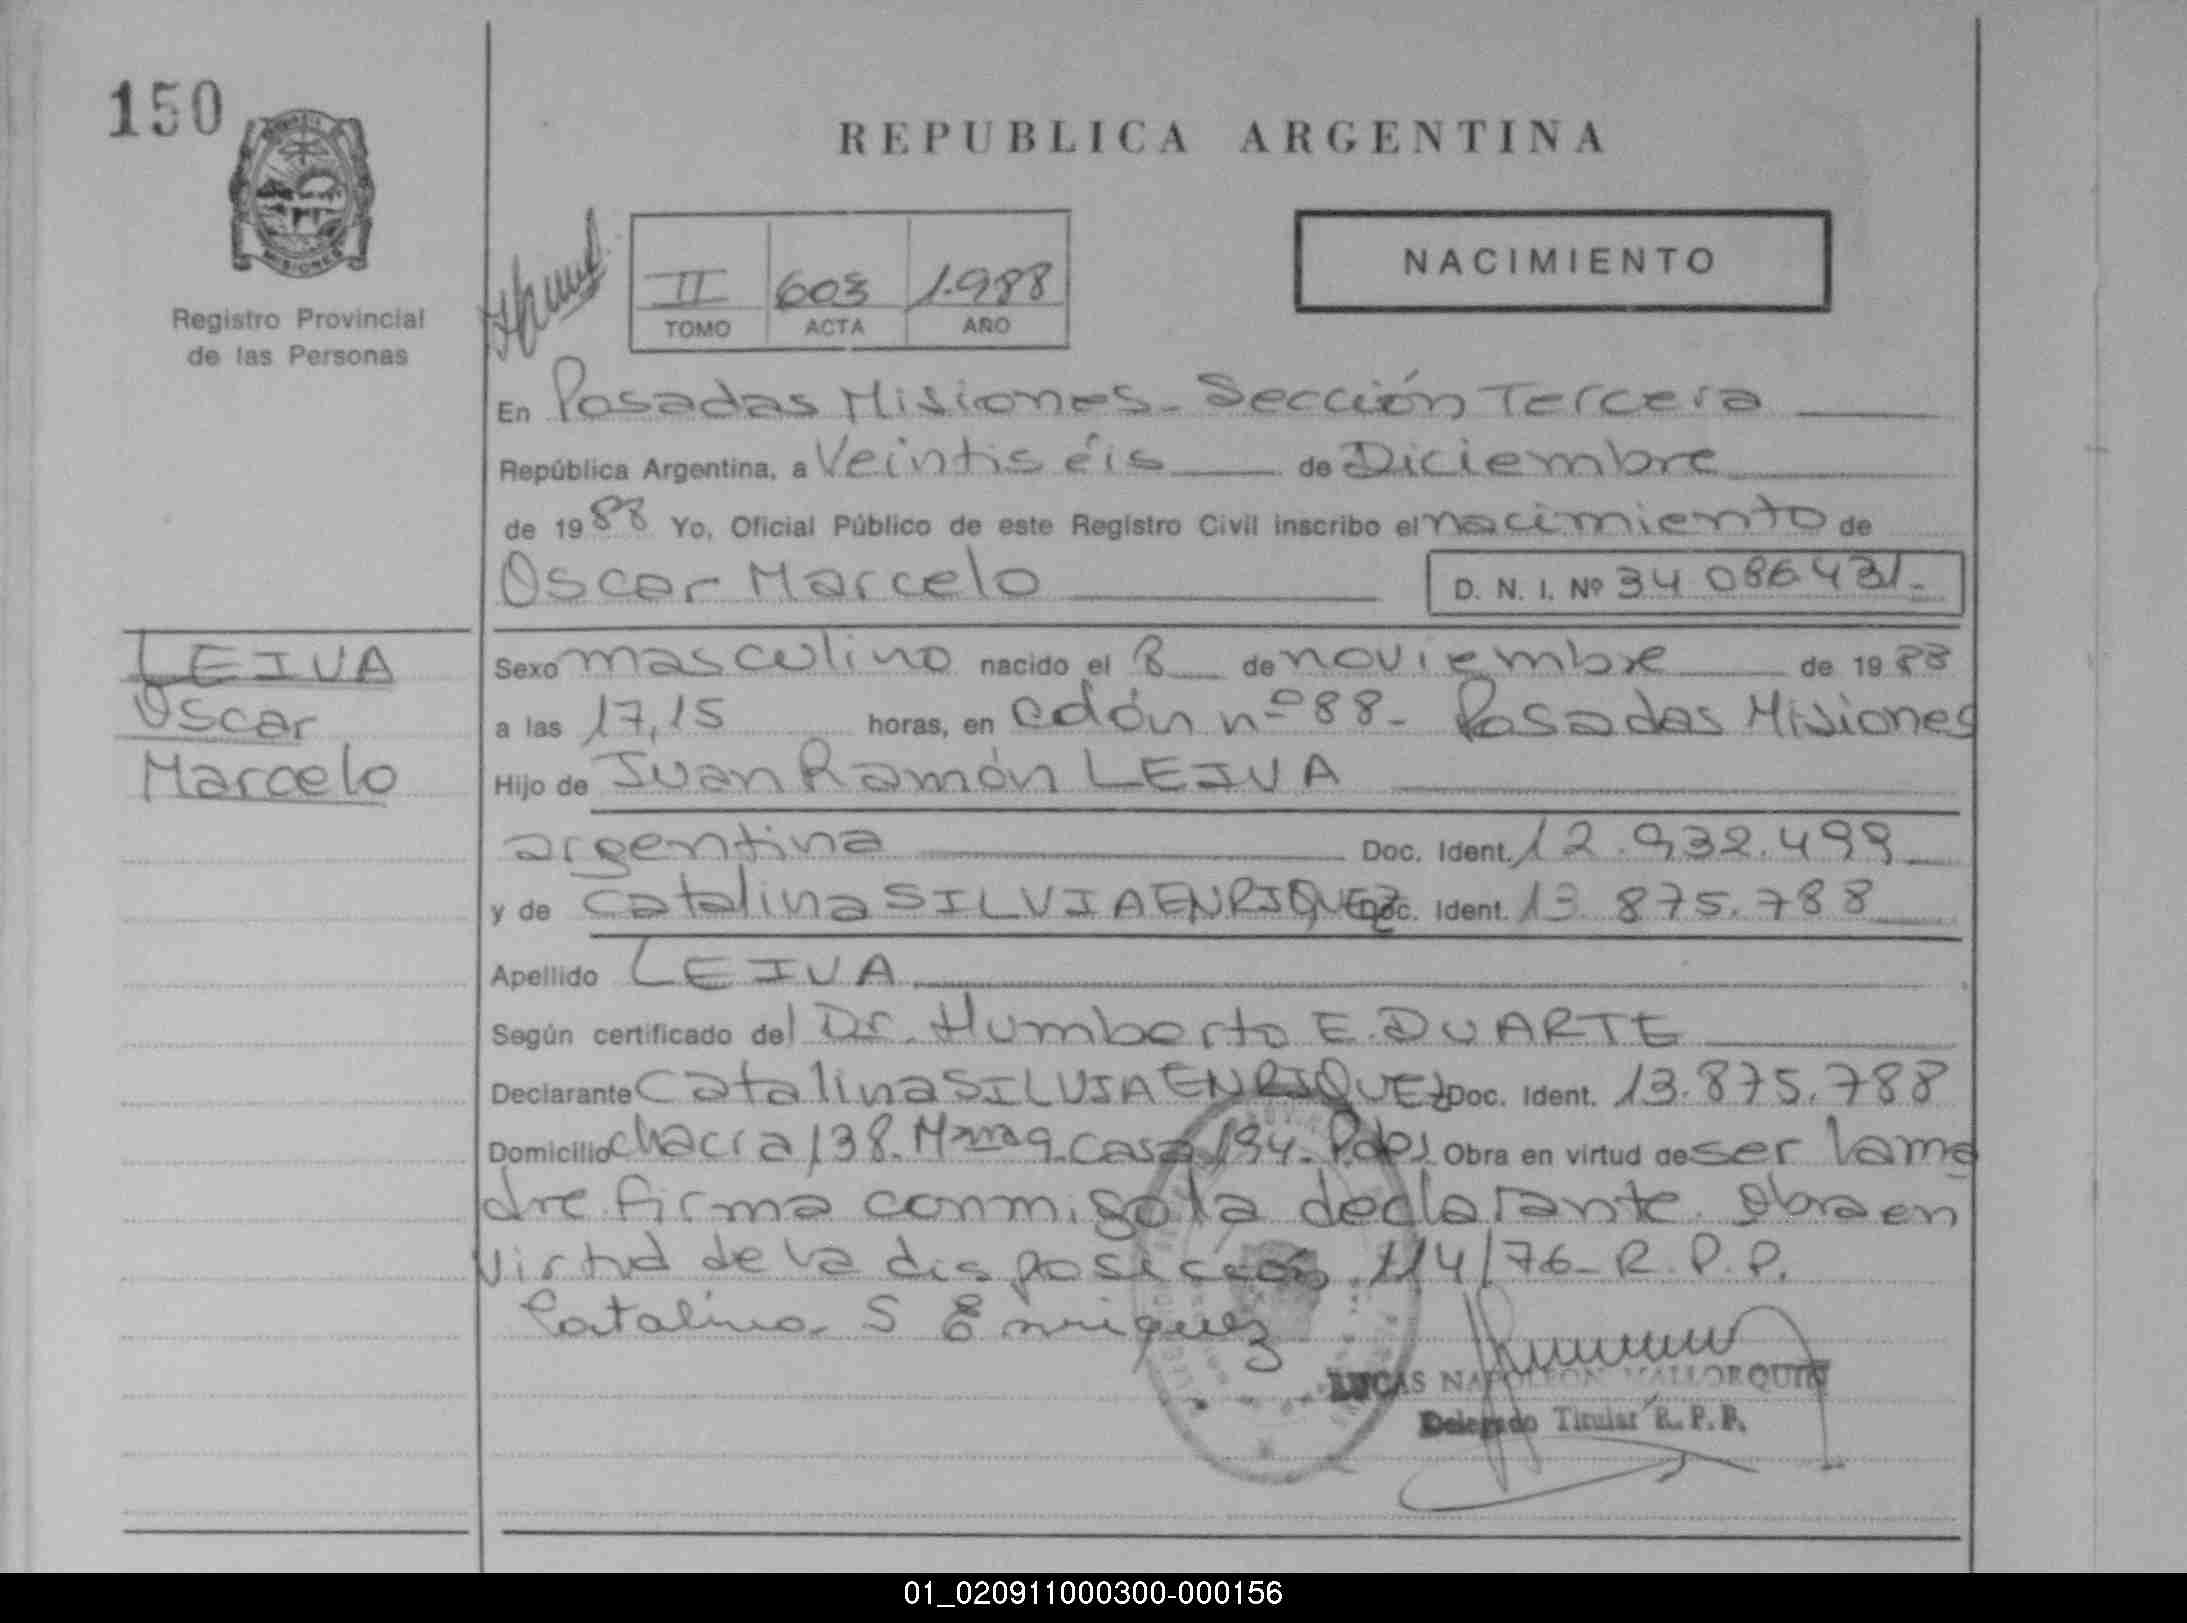 150
REPUBLICA ARGENTINA
MISIONES
Registro Provincial
de las Personas
II 603 1.988
TOMO ACTA AÑO
NACIMIENTO
En Posadas Misiones - Sección Tercera
República Argentina, a Veintiséis de Diciembre
de 1988 Yo, Oficial Público de este Registro Civil inscribo el nacimiento de
Oscar Marcelo D. N. I. Nº 34 086431.-
LEIVA
Oscar
Marcelo
Sexo masculino nacido el 8 de noviembre de 1988
a las 17,15 horas, en colón nº 88 - Posadas Misiones
Hijo de Juan Ramón LEIVA
argentina Doc. Ident. 12.932.499
y de Catalina SILVIA ENRIQUEZ Doc. Ident. 13.875.788
Apellido LEIVA
Según certificado del Dr. Humberto E. DUARTE
Declarante Catalina SILVIA ENRIQUEZ Doc. Ident. 13.875.788
Domicilio chacra 138. casa 194. Pdas. Obra en virtud de ser la ma
dre firma conmigo la declarante. Obra en
virtud de la disposición 114/76 - R.P.P.
Catalina S Enriquez
LUCAS NAPOLEON MALLORQUIN
Delegado Titular R.P.P.
01_020911000300-000156